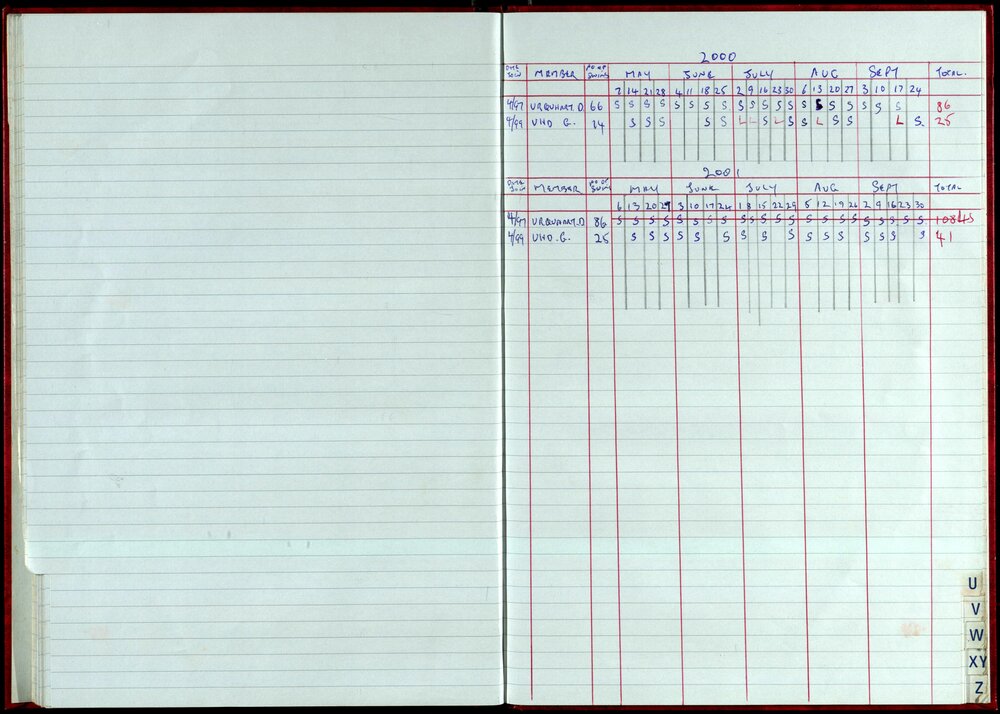 2000
DATE JOIN MEMBER NO OF SWIMS MAY JUNE JULY AUG SEPT TOTAL.
7 14 21 28 4 11 18 25 2 9 16 23 30 6 13 20 27 3 10 17 24
4/97 URQUHART. D. 66 S S S S S S S S S S S S S S S S S S S S 86
4/99 UHD G. 14 S S S S S L L S L S S L S S L S. 25
2001
DATE JOIN MEMBER NO OF SWIMS MAY JUNE JULY AUG SEPT TOTAL
6 13 20 27 3 10 17 24 1 8 15 22 29 5 12 19 26 2 9 16 23 30
4/97 URQUHART. D 86 S S S S S S S S S S S S S S S S S S S S S S 108
4/99 UHD. G. 25 S S S S S S S S S S S S S S S S 41
U
V
W
XY
Z